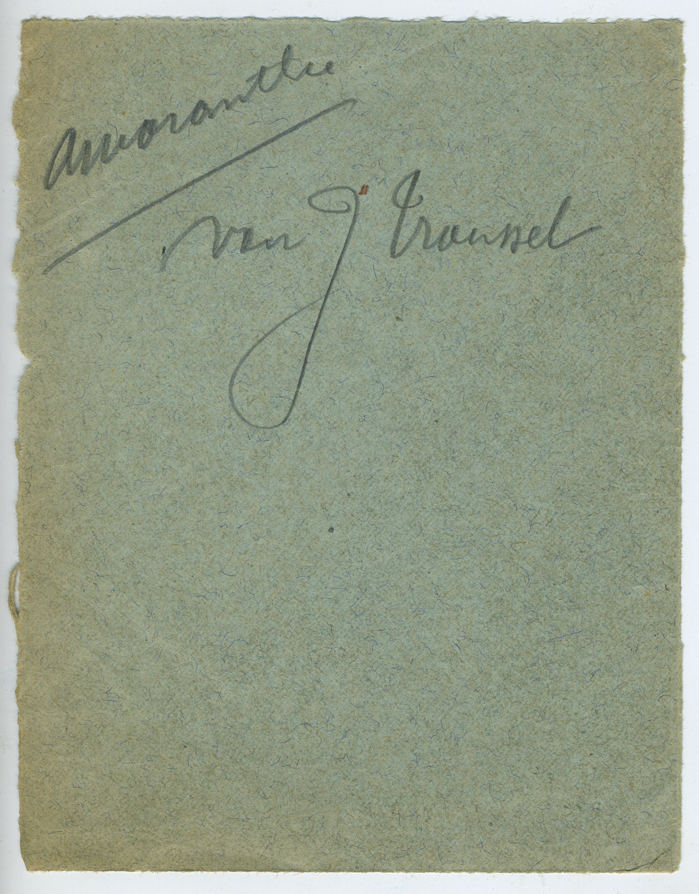 Amaranthe
van J Troussel